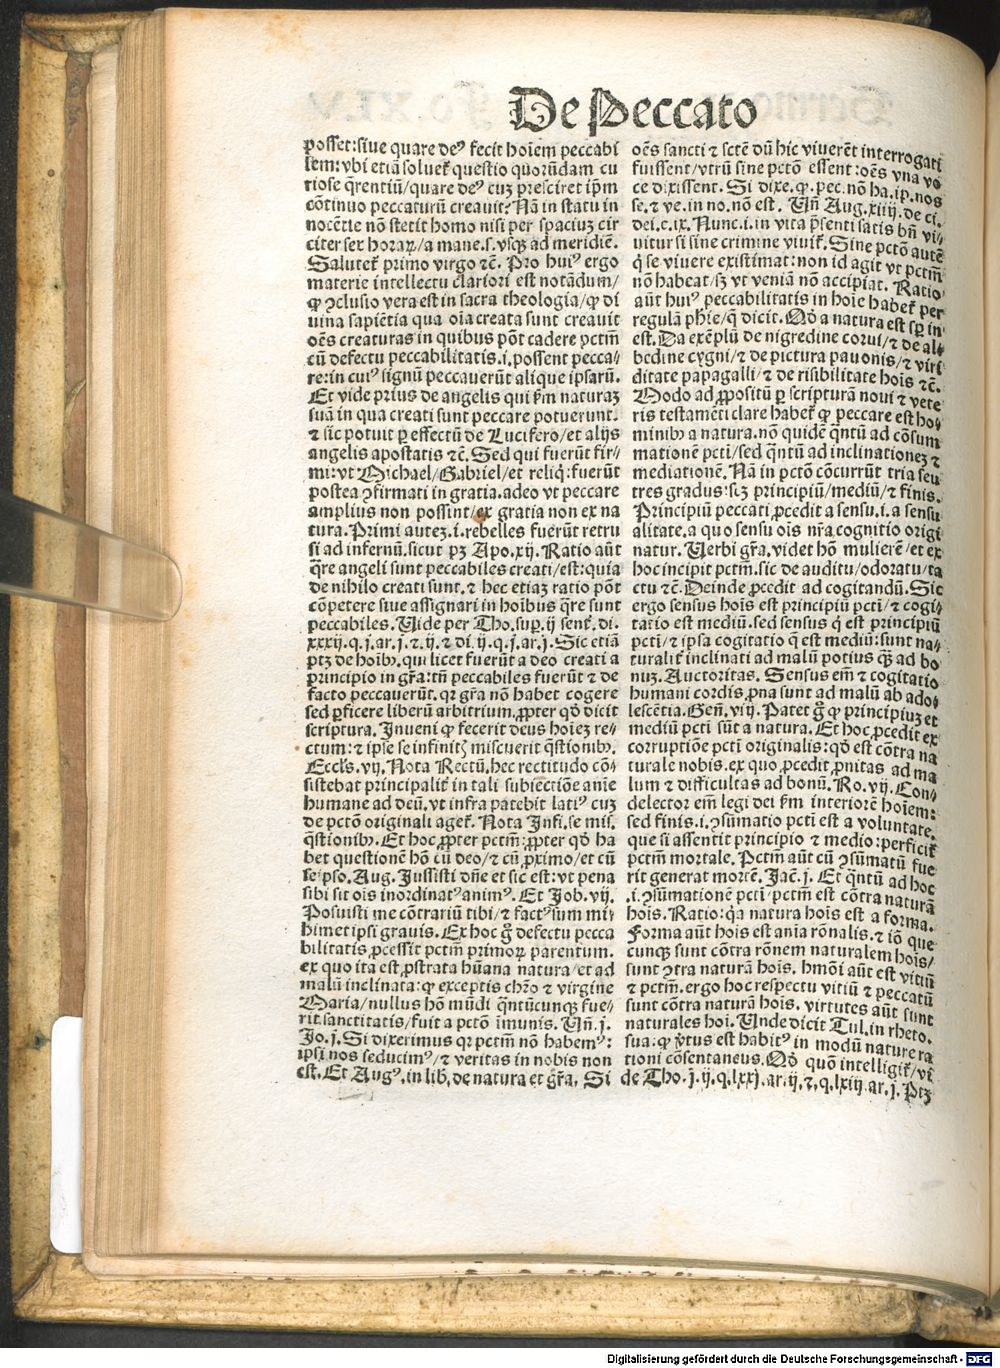 De Peccato
posset:siue quare de⁹ fecit hoīem peccabi
lem:vbi etiā soluet̃ questio quorūdam cu
riose q̄rentiū/quare de⁹ cuꝫ presciret ip̄m
cōtinuo peccaturū creauit? Nā in statu in
nocētie nō stetit homo nisi per spaciuꝫ cir
citer sex horaꝝ/a mane.s.vsqꝫ ad meridiē.
Salutet̃ primo virgo ⁊c̄. Pro hui⁹ ergo
materie intellectu clariori est notādum/
ꝙ ꝯclusio vera est in sacra theologia/ꝙ di
uina sapiētia qua oīa creata sunt creauit
oēs creaturas in quibus pōt cadere pctm̄
cū defectu peccabilitatis.i.possent pecca-
re:in cui⁹ signū peccauerūt alique ipsarū.
Et vide prius de angelis qui ẜm naturaꝫ
suā in qua creati sunt peccare potuerunt.
⁊ sic potuit ꝑ effectū de Lucifero/et alijs
angelis apostatis ⁊c̄. Sed qui fuerūt fir-
mi:vt Michael/Gabriel/et reliq̄:fuerūt
postea ꝯfirmati in gratia.adeo vt peccare
amplius non possint/ex gratia non ex na
tura. Primi auteꝫ.i.rebelles fuerūt retru
si ad infernū.sicut pꝫ Apo.xij. Ratio aūt
q̄re angeli sunt peccabiles creati/est:quia
de nihilo creati sunt.⁊ hec etiaꝫ ratio pōt
cōpetere siue assignari in hoībus q̄re sunt
peccabiles. Vide per Tho.suꝑ.ij sent̃.di.
xxxij.q.j.ar.j.⁊.ij.⁊ di ij.q.j.ar.j. Sic etiā
ptꝫ de hoībꝫ.qui licet fuerūt a deo creati a
principio in grā:tn̄ peccabiles fuerūt ⁊ de
facto peccauerūt.qꝛ grā nō habet cogere
sed ꝑficere liberū arbitrium.ꝓpter qd̄ dicit
scriptura. Inueni ꝙ fecerit deus hoīeꝫ re-
ctum:⁊ ipse se infinitꝭ miscuerit q̄stionibꝫ.
Eccl̄s.vij. Nota Rectū.hec rectitudo cō-
sistebat principalit̃ in tali subiectiōe anīe
humane ad deū.vt infra patebit lati⁹ cuꝫ
de pctō originali aget̃. Nota Infi.se mis.
q̄stionibꝫ. Et hoc ꝓpter pctm̄:ꝓpter qd̄ ha
bet questionē hō cū deo/⁊ cū ꝓximo/et cū
seipso. Aug. Iussisti dn̄e et sic est:vt pena
sibi sit oīs inordinat⁹anim⁹. Et Job.vij.
Posuisti me cōtrariū tibi/⁊ fact⁹sum mi-
himetipsi grauis. Ex hoc g̊ defectu pecca
bilitatis ꝓcessit pctm̄ primoꝝ parentum.
ex quo ita est ꝓstrata hūana natura/et ad
malū inclinata:ꝙ exceptis chr̄o ⁊ virgine
Maria/nullus hō mūdi q̄ntūcunqꝫ fue-
rit sanctitatis/fuit a pctō īmunis. Vn̄.j.
Jo.j. Si dixerimus qꝛ pctm̄ nō habem⁹:
ipsi nos seducim⁹/⁊ veritas in nobis non
est. Et Aug⁹.in lib.de natura et grā. Si
oēs sancti ⁊ sctē dū hic viuerēt interrogati
fuissent/vtrū sine pctō essent:oēs vna vo
ce dixissent. Si dixe.ꝙ.pec.nō ha.ip.nos
se.⁊ ve.in no.nō est. Vn̄ Aug.xiiij.de ci.
dei.c.ix. Nunc.i.in vita p̄senti satis bn̄ vi-
uitur si sine crimine viuit̃. Sine pctō autē
q̇ se viuere existimat:non id agit vt pctm̄
nō habeat/sꝫ vt veniā nō accipiat. Ratio
aūt hui⁹ peccabilitatis in hoīe habet̃ per
regulā phīe/q̄ dicit. Qd̄ a natura est sꝑ in
est. Da exēplū de nigredine corui/⁊ de al-
bedine cygni/⁊ de pictura pauonis/⁊ viri
ditate papagalli/⁊ de risibilitate hoīs ⁊c̄.
Modo ad ꝓpositū ꝑ scripturā noui ⁊ vete
ris testamēti clare habet̃ ꝙ peccare est ho-
minibꝫ a natura.nō quidē q̄ntū ad cōsum
mationē pcti/sed q̄ntū ad inclinationeꝫ ⁊
mediationē. Nā in pctō cōcurrūt tria seu
tres gradus:sꝫ principiū/mediū/⁊ finis.
Principiū peccati ꝓcedit a sensu.i.a sensu
alitate.a quo sensu oīs nr̄a cognitio origi
natur. Verbi grā.videt hō mulierē/et ex
hoc incipit pctm̄.sic de auditu/odoratu/ta
ctu ⁊c̄. Deinde ꝓcedit ad cogitandū. Sic
ergo sensus hoīs est principiū pcti/⁊ cogi-
tatio est mediū.sed sensus q̇ est principiū
pcti/⁊ ipsa cogitatio q̄ est mediū:sunt na-
turalit̃ inclinati ad malū potius q̄ꝫ ad bo
nuꝫ. Auctoritas. Sensus em̄ ⁊ cogitatio
humani cordis ꝓna sunt ad malū ab ado-
lescētia. Gen̄.viij. Patet g̊ ꝙ principiuꝫ et
mediū pcti sūt a natura. Et hoc ꝓcedit ex
corruptiōe pcti originalis:qd̄ est cōtra na
turale nobis.ex quo ꝓcedit ꝓnitas ad ma
lum ⁊ difficultas ad bonū. Ro.vij. Con-
delector em̄ legi dei ẜm interiorē hoīem:
sed finis.i.ꝯsūmatio pcti est a voluntate.
que si assentit principio ⁊ medio:perficit̃
pctm̄ mortale. Pctm̄ aūt cū ꝯsūmatū fue
rit generat mortē. Jac̄.j. Et q̄ntū ad hoc
.i.ꝯsūmationē pcti/pctm̄ est cōtra naturā
hoīs. Ratio:q̄a natura hoīs est a forma.
Forma aūt hoīs est anīa rōnalis.⁊ iō que
cunqꝫ sunt cōtra rōnem naturalem hoīs/
sunt ꝯtra naturā hoīs. hmōi aūt est vitiū
⁊ pctm̄.ergo hoc respectu vitiū ⁊ peccatū
sunt cōtra naturā hoīs. virtutes aūt sunt
naturales hoī. Unde dicit Tul.in rheto.
sua:ꝙ ꝟtus est habit⁹ in modū nature ra
tioni cōsentaneus. Qd̄ quō intelligit̃/vi
de Tho.j.ij.q.lxxj.ar.ij.⁊.q.lxiij ar.j. Ptꝫ
Digitalisierung gefördert durch die Deutsche Forschungsgemeinschaft - DFG